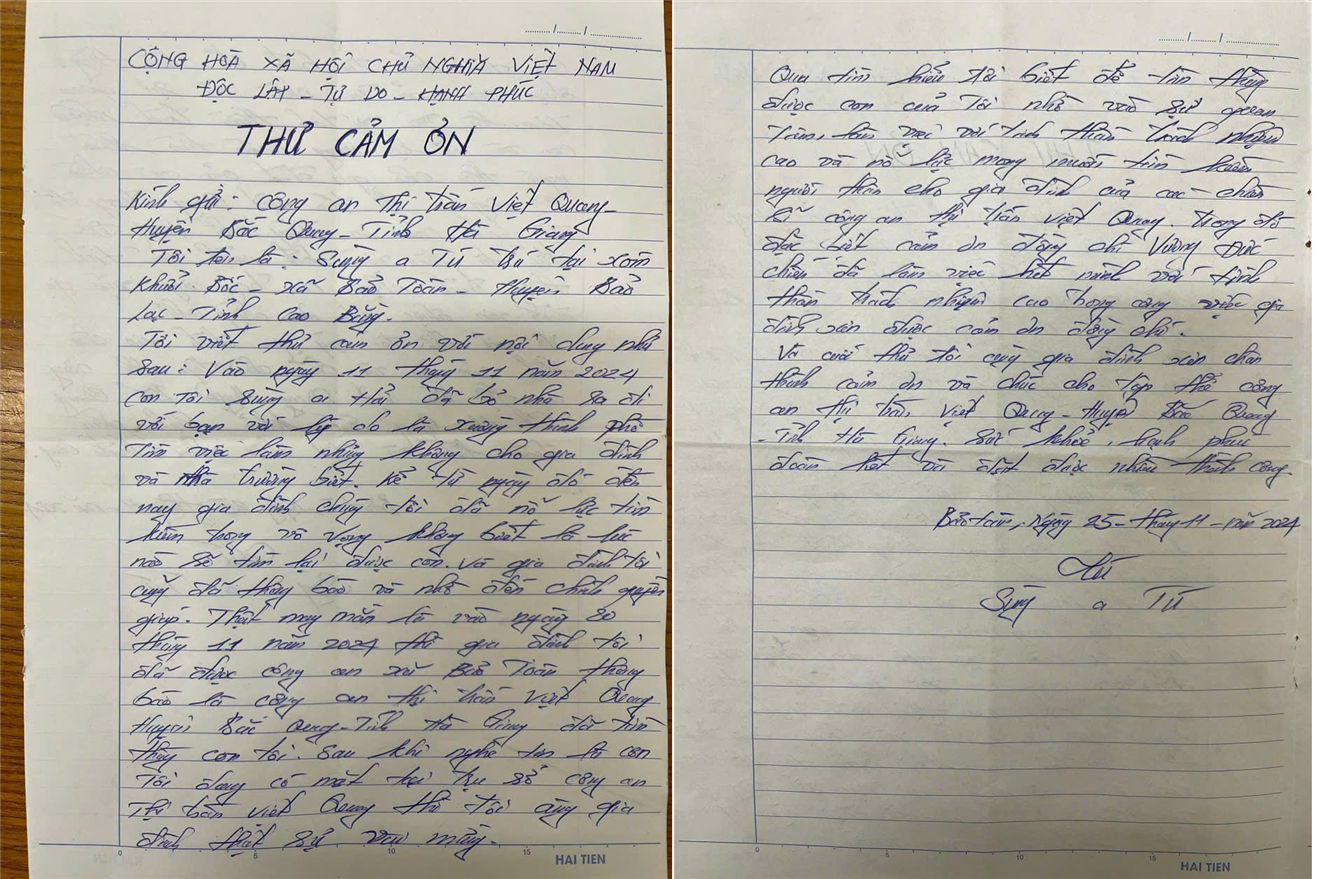 CỘNG HÒA XÃ HỘI CHỦ NGHĨA VIỆT NAM
ĐỘC LẬP - TỰ DO - HẠNH PHÚC
THƯ CẢM ƠN
Kính gửi: Công an Thị trấn Việt Quang -
Huyện Bắc Quang - Tỉnh Hà Giang
Tôi tên là: Sùng a Tú trú tại xóm
Khuổi Bốc - xã Bảo Toàn - Huyện Bảo
Lạc - Tỉnh Cao Bằng.
Tôi viết thư cảm ơn với nội dung như
sau: Vào ngày 11 tháng 11 năm 2024
con tôi Sùng a Thử đã bỏ nhà ra đi
với bạn với lý do là xuống thành phố
Tìm việc làm nhưng không cho gia đình
và nhà trường biết. Kể từ ngày đó đến
nay gia đình chúng tôi đã nỗ lực tìm
kiếm trong vô vọng không biết là lúc
nào sẽ tìm lại được con. Và gia đình tôi
cũng đã thông báo và nhờ đến chính quyền
giúp. Thật may mắn là vào ngày 20
tháng 11 năm 2024 thì gia đình tôi
đã được công an xã Bảo Toàn thông
báo là công an thị trấn Việt Quang
Huyện Bắc Quang - Tỉnh Hà Giang đã tìm
thấy con tôi. Sau khi nghe tin là con
Tôi đang có mặt tại trụ sở công an
Thị trấn Việt Quang thì tôi cùng gia
đình thật sự vui mừng.
HAI TIEN
Qua tìm hiểu tôi biết để tìm thấy
được con của Tôi nhờ vào sự quan
Tâm, làm việc với tinh thần trách nhiệm
cao và nỗ lực mong muốn tìm kiếm
người thân cho gia đình của các chiến
sĩ công an thị trấn Việt Quang. trong đó
đặc biệt cảm ơn đồng chí Vương Đức
Chiến đã làm việc hết mình với tinh
thần trách nhiệm cao trong công việc gia
đình xin được cảm ơn đồng chí.
Và cuối thư tôi cùng gia đình xin chân
thành cảm ơn và chúc cho tập thể công
an thị trấn Việt Quang - Huyện Bắc Quang
- Tỉnh Hà Giang. Sức khỏe, hạnh phúc
đoàn kết và đạt được nhiều thành công
Bảo toàn, Ngày 25 - tháng 11 - năm 2024
Tú
Sùng a Tú
HAI TIEN